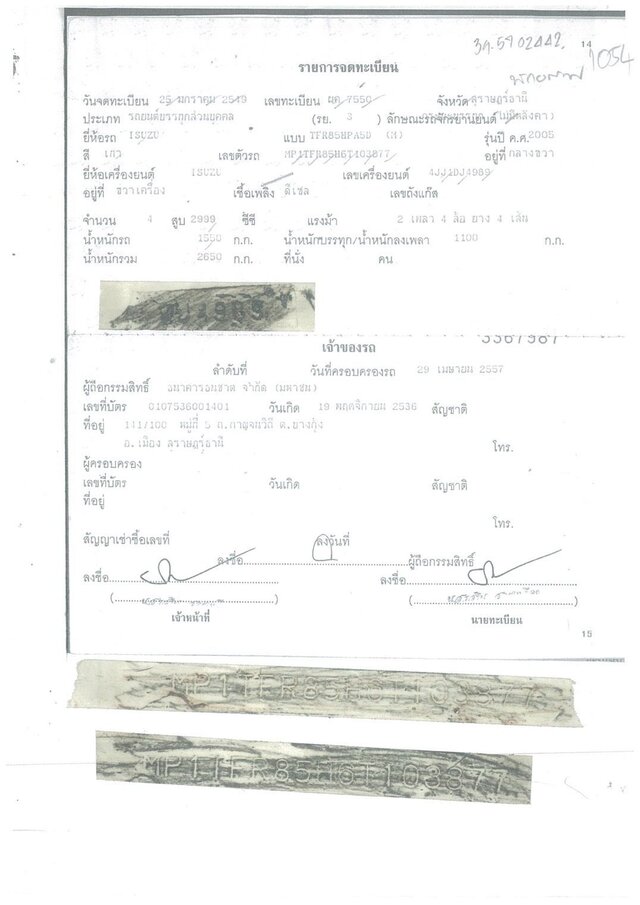 3ก.5902442. 14
1054
รายการจดทะเบียน
วันจดทะเบียน 25 มกราคม 2549 เลขทะเบียน ผค 7550 จังหวัด สุราษฎร์ธานี
ประเภท รถยนต์บรรทุกส่วนบุคคล (รย. 3 ) ลักษณะรถจักรยานยนต์
ยี่ห้อรถ ISUZU แบบ TFR85HPA5D (M) รุ่นปี ค.ศ. 2005
สี เทา เลขตัวรถ MP1TFR85H6T103877 อยู่ที่ กลางขวา
ยี่ห้อเครื่องยนต์ ISUZU เลขเครื่องยนต์ 4JJ1DJ4989
อยู่ที่ ขวาเครื่อง เชื้อเพลิง ดีเซล เลขถังแก๊ส
จำนวน 4 สูบ 2999 ซีซี แรงม้า 2 เพลา 4 ล้อ ยาง 4 เส้น
น้ำหนักรถ 1550 ก.ก. น้ำหนักบรรทุก/น้ำหนักลงเพลา 1100 ก.ก.
น้ำหนักรวม 2650 ก.ก. ที่นั่ง คน
JJ4989
3367967
เจ้าของรถ
ลำดับที่ วันที่ครอบครองรถ 29 เมษายน 2557
ผู้ถือกรรมสิทธิ์ ธนาคารธนชาต จำกัด (มหาชน)
เลขที่บัตร 0107536001401 วันเกิด 19 พฤศจิกายน 2536 สัญชาติ
ที่อยู่ 111/100 หมู่ที่ 5 ถ.กาญจนวิถี ต.บางกุ้ง
อ.เมือง สุราษฎร์ธานี โทร.
ผู้ครอบครอง
เลขที่บัตร วันเกิด สัญชาติ
ที่อยู่
โทร.
สัญญาเช่าซื้อเลขที่ ลงวันที่
ลงชื่อ ผู้ถือกรรมสิทธิ์
ลงชื่อ ลงชื่อ
เจ้าหน้าที่ นายทะเบียน
15
MP1TFR85H6T103877
MP1TFR85H6T103877